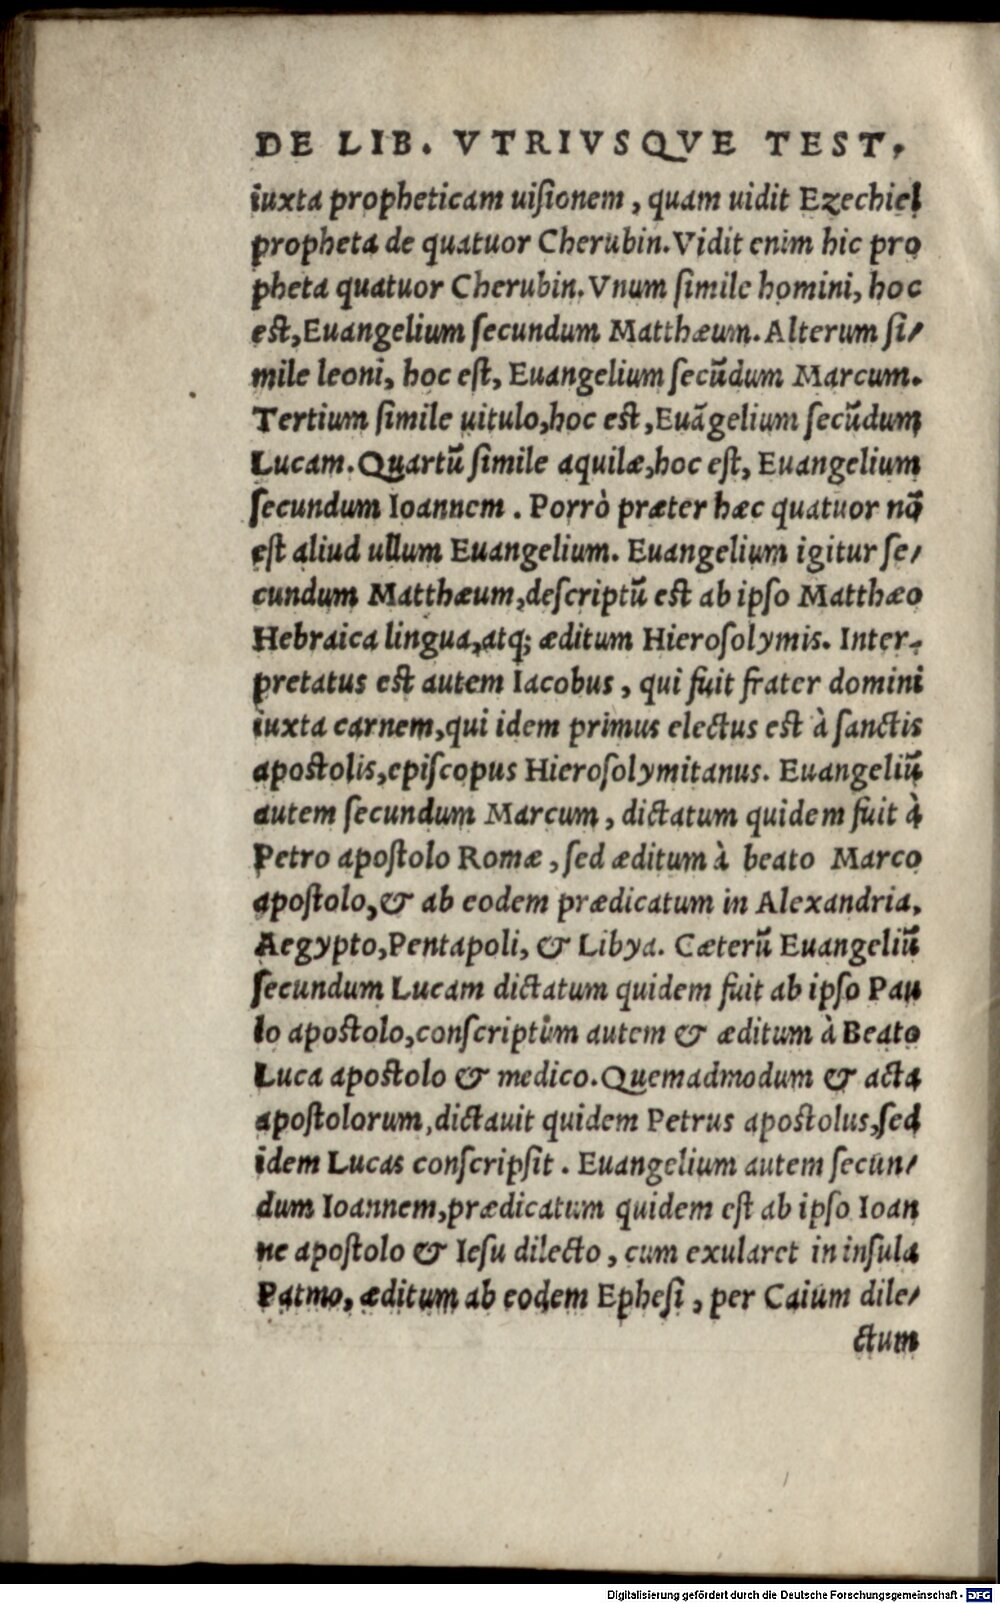 DE LIB. VTRIVSQVE TEST.
iuxta propheticam uiſionem, quam uidit Ezechiel
propheta de quatuor Cherubin. Vidit enim hic pro
pheta quatuor Cherubin. Vnum ſimile homini, hoc
eſt, Euangelium ſecundum Matthæum. Alterum ſi/
mile leoni, hoc eſt, Euangelium ſecũdum Marcum.
Tertium ſimile uitulo, hoc eſt, Euãgelium ſecũdum
Lucam. Quartũ ſimile aquilæ, hoc eſt, Euangelium
ſecundum Ioannem. Porrò præter hæc quatuor nõ
eſt aliud ullum Euangelium. Euangelium igitur ſe/
cundum Matthæum, deſcriptũ eſt ab ipſo Matthæo
Hebraica lingua, atq; æditum Hieroſolymis. Inter-
pretatus eſt autem Iacobus, qui fuit frater domini
iuxta carnem, qui idem primus electus eſt à ſanctis
apoſtolis, epiſcopus Hieroſolymitanus. Euangeliũ
autem ſecundum Marcum, dictatum quidem fuit à
Petro apoſtolo Romæ, ſed æditum à beato Marco
apoſtolo, & ab eodem prædicatum in Alexandria,
Aegypto, Pentapoli, & Libya. Cæterũ Euangeliũ
ſecundum Lucam dictatum quidem fuit ab ipſo Pau
lo apoſtolo, conſcriptum autem & æditum à Beato
Luca apoſtolo & medico. Quemadmodum & acta
apoſtolorum, dictauit quidem Petrus apoſtolus, ſed
idem Lucas conſcripſit. Euangelium autem ſecun/
dum Ioannem, prædicatum quidem eſt ab ipſo Ioan
ne apoſtolo & Ieſu dilecto, cum exularet in inſula
Patmo, æditum ab eodem Epheſi, per Caium dile/
ctum
Digitalisierung gefördert durch die Deutsche Forschungsgemeinschaft - DFG